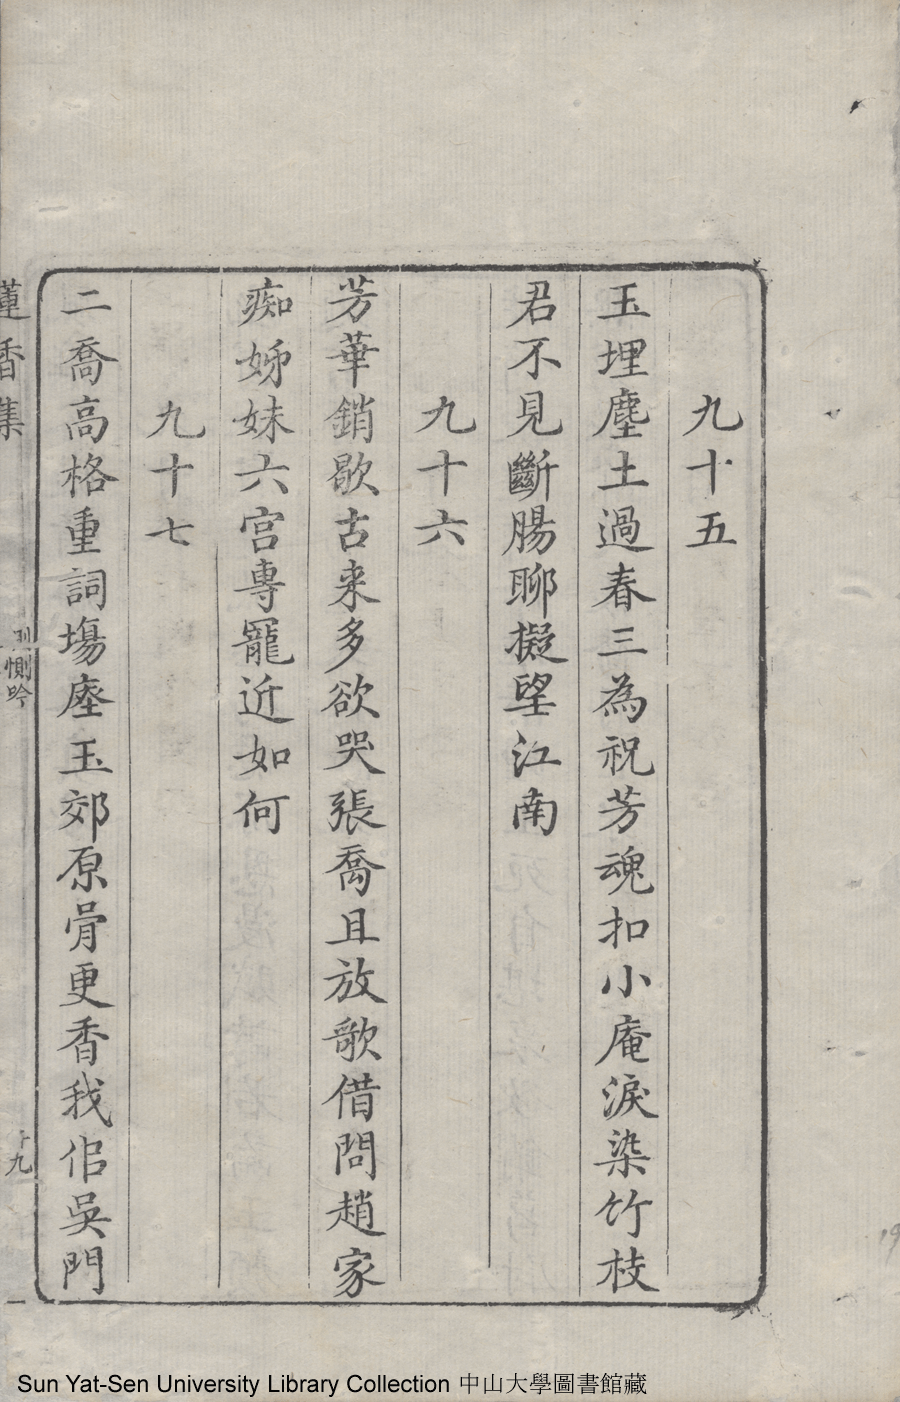 九十五
玉埋塵土過春三為祝芳魂扣小庵淚染竹枝
君不見斷腸聊擬望江南
九十六
芳華銷歇古来多欲哭張喬且放歌借問趙家
痴姊妹六宫專寵近如何
九十七
二喬高格重詞塲塵玉郊原骨更香我佀吳門
蓮香集
惻吟
十九
19
Sun Yat-Sen University Library Collection 中山大學圖書館藏